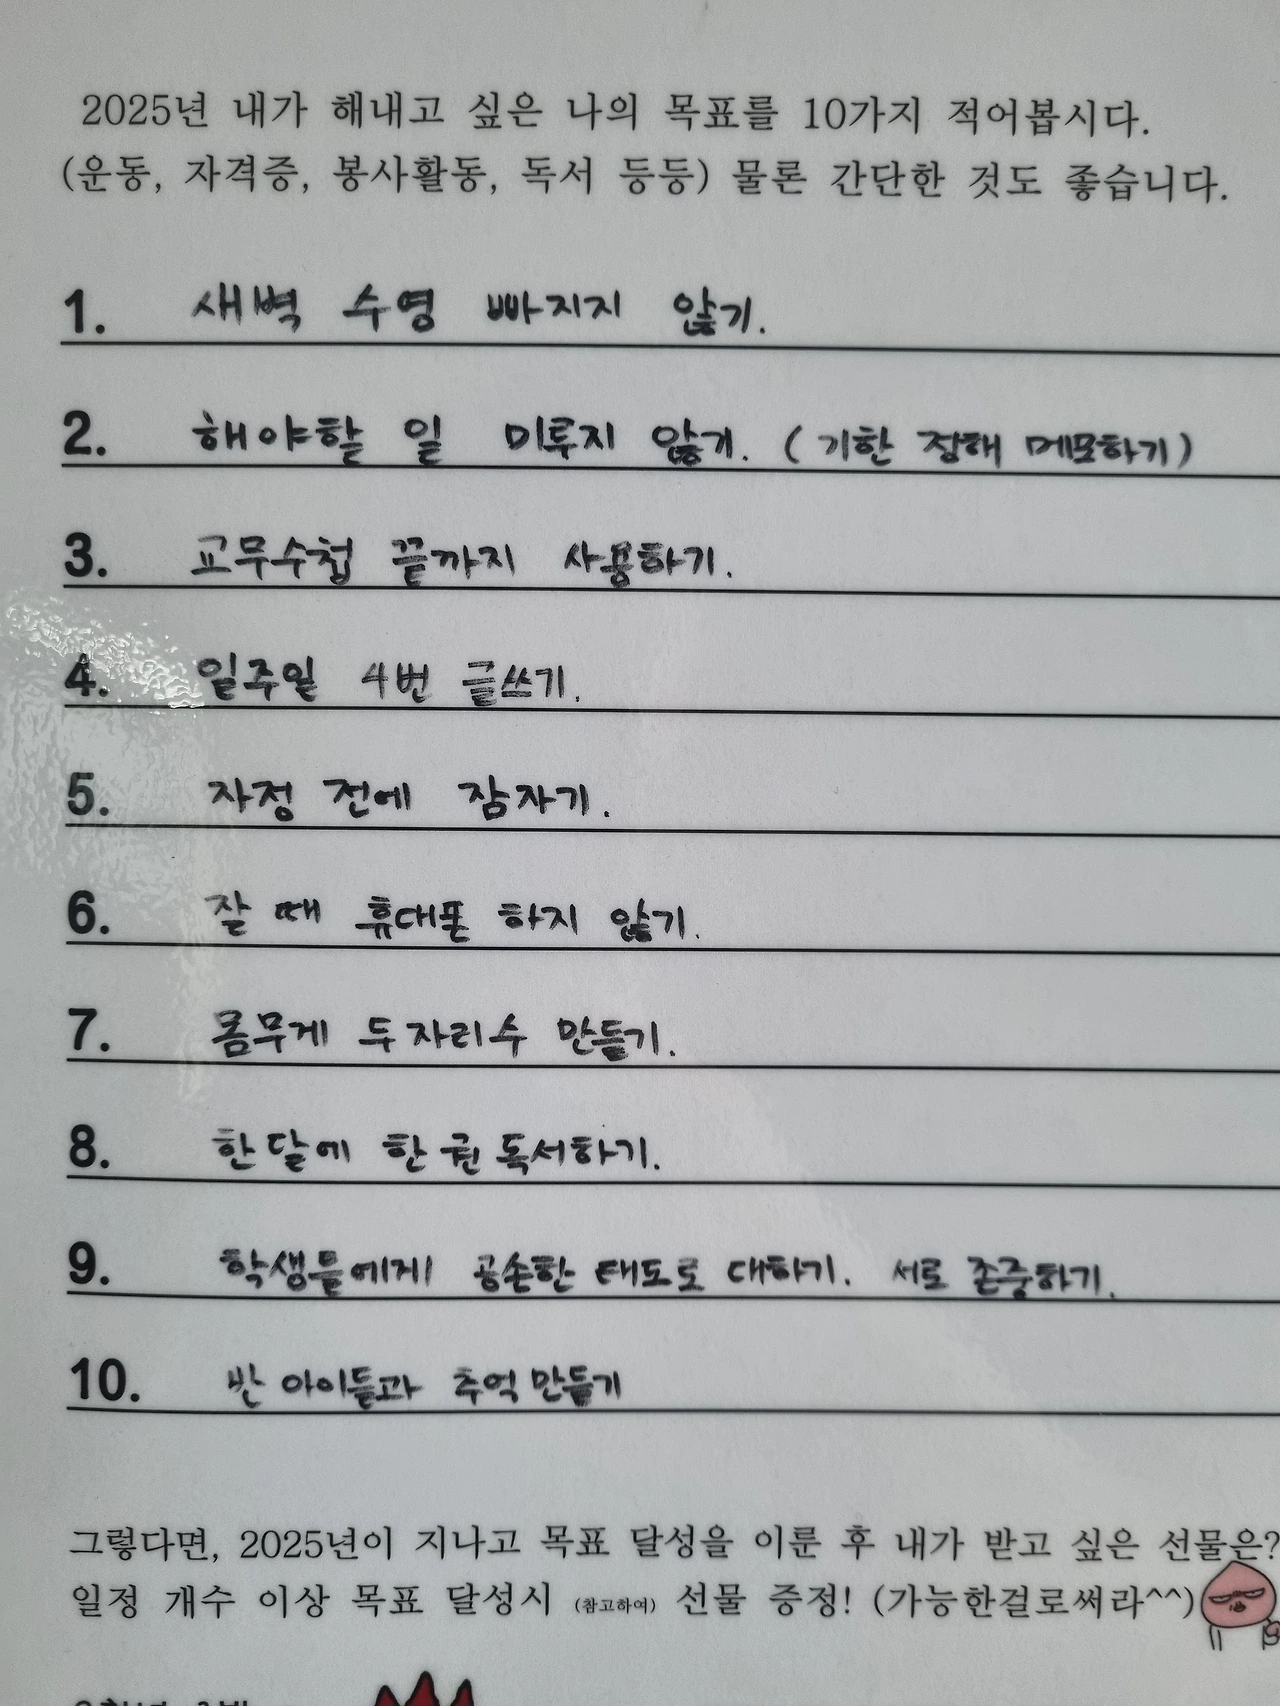 2025년 내가 해내고 싶은 나의 목표를 10가지 적어봅시다.
(운동, 자격증, 봉사활동, 독서 등등) 물론 간단한 것도 좋습니다.
1. 새벽 수영 빠지지 않기.
2. 해야할 일 미루지 않기. (기한 정해 메모하기)
3. 교무수첩 끝까지 사용하기.
4. 일주일 4번 글쓰기.
5. 자정 전에 잠자기.
6. 잘 때 휴대폰 하지 않기.
7. 몸무게 두자리수 만들기.
8. 한달에 한 권 독서하기.
9. 학생들에게 공손한 태도로 대하기. 서로 존중하기.
10. 반 아이들과 추억 만들기
그렇다면, 2025년이 지나고 목표 달성을 이룬 후 내가 받고 싶은 선물은?
일정 개수 이상 목표 달성시 (참고하여) 선물 증정! (가능한걸로써라^^)